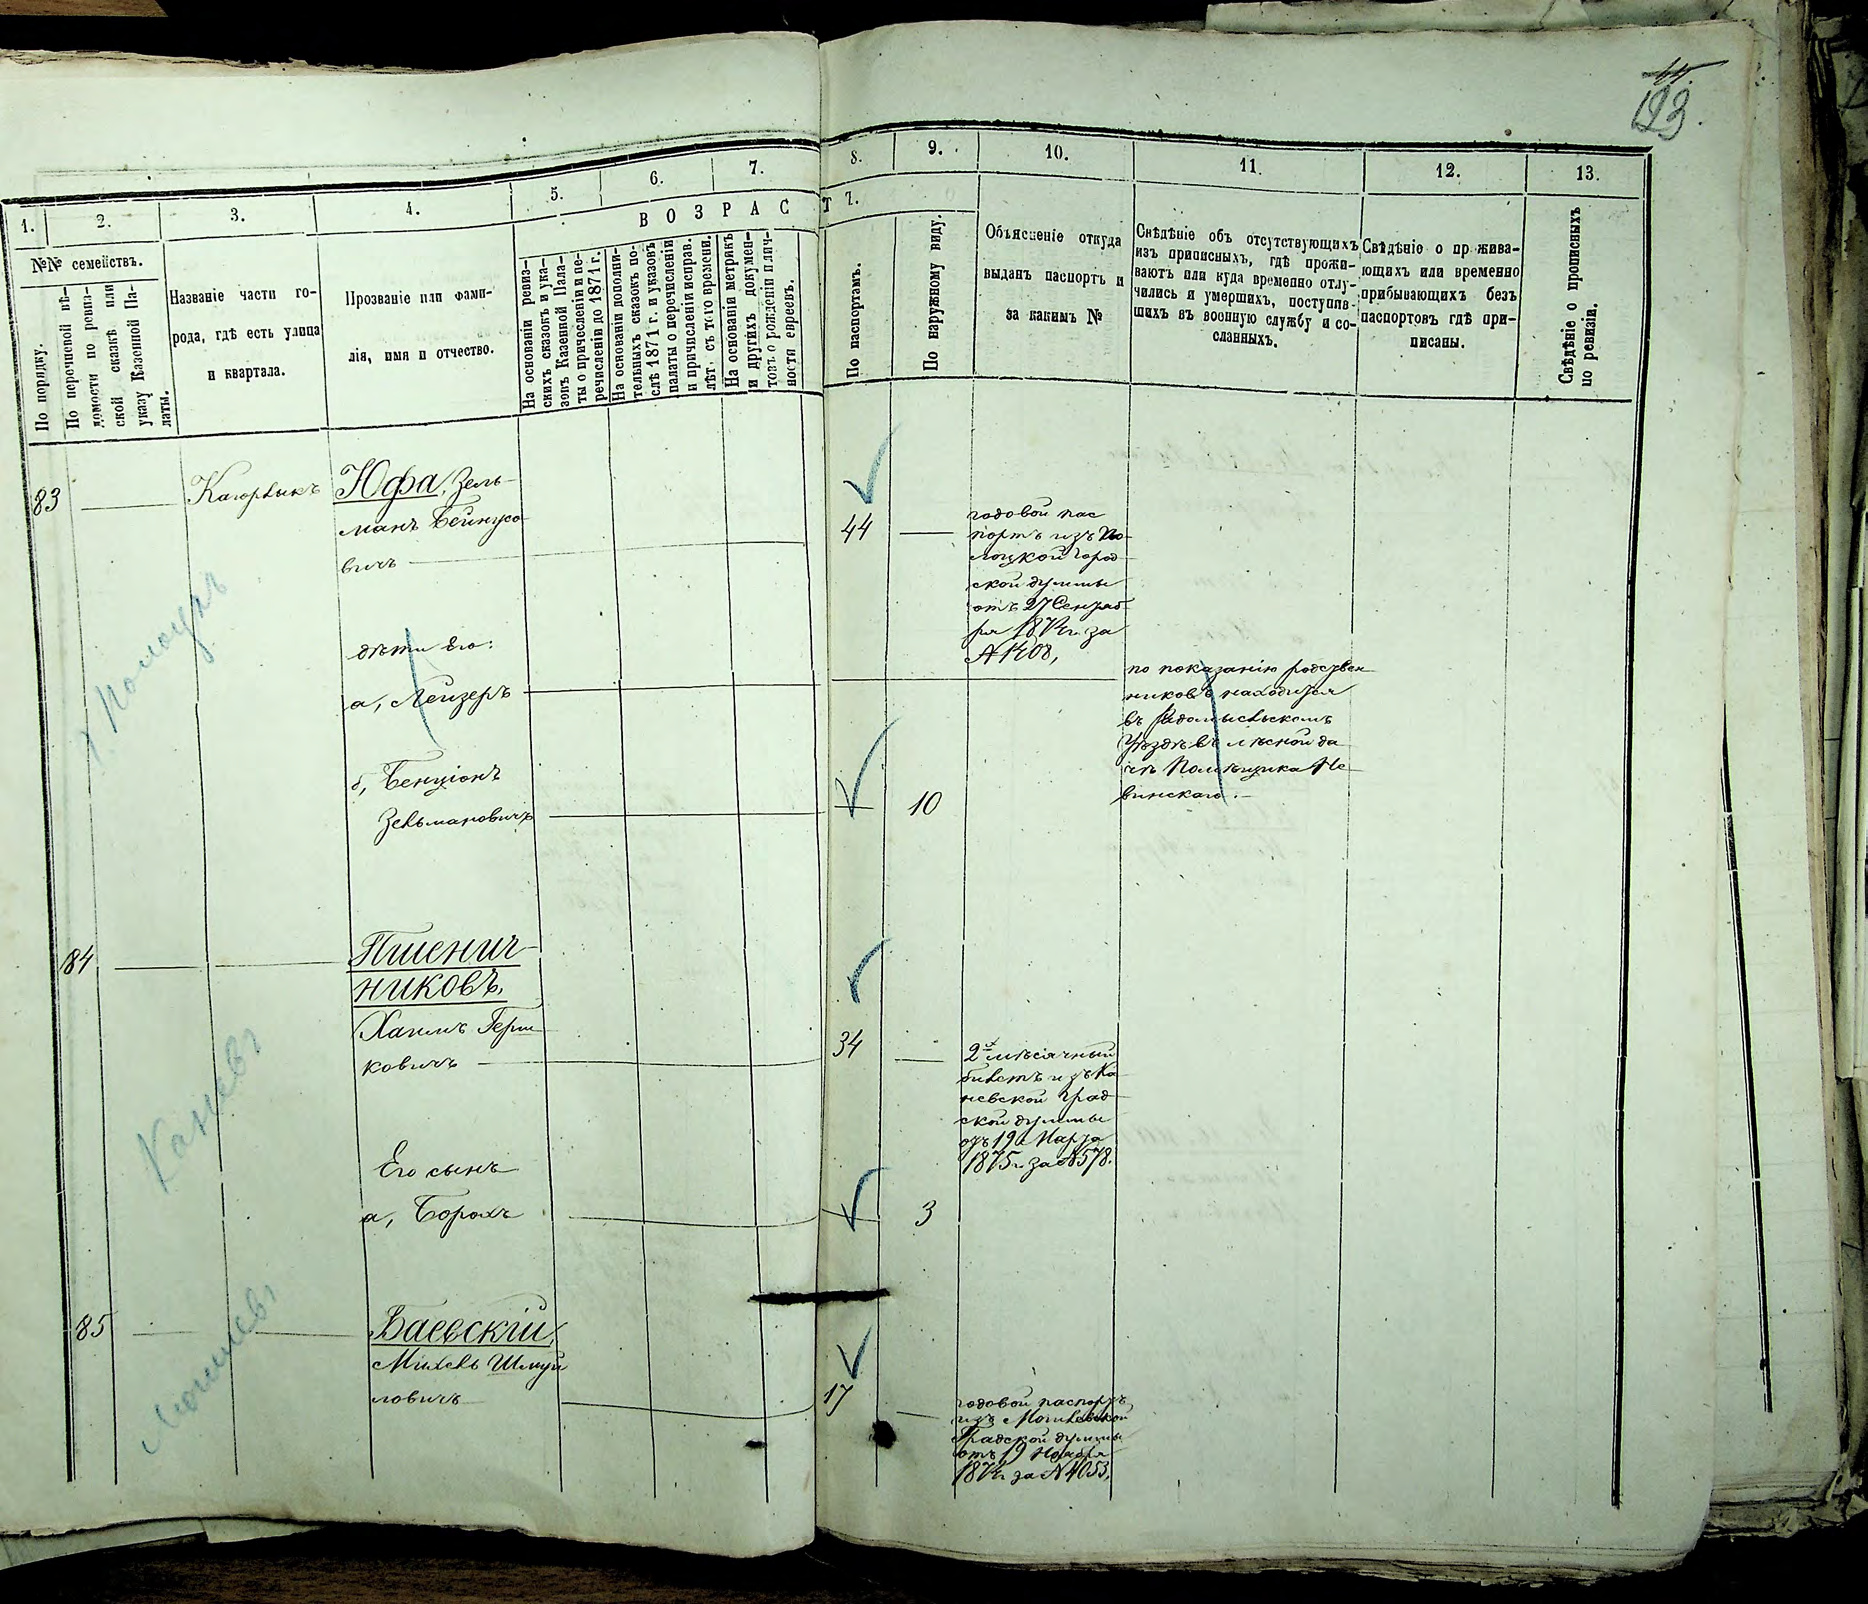 44.
123.
1.
2.
3.
4.
5.
6.
7.
8.
9.
10.
11.
12.
13.
В О З Р А С
Т 7.
№№ семействъ.
По порядку.
По перечневой вѣ-
домости по ревиз-
ской сказкѣ или
указу Казенной Па-
латы.
Названіе части го-
рода, гдѣ есть улица
и квартала.
Прозваніе или фами-
лія, имя и отчество.
На основаніи ревиз-
скихъ сказокъ и ука-
зовъ Казенной Пала-
ты о причисленіи и пе-
речисленіи до 1871 г.
На основаніи дополни-
тельныхъ сказокъ по-
слѣ 1871 г. и указовъ
палаты о перечисленіи
и причисленіи исправ.
лѣт. съ того времени.
На основаніи метрикъ
и другихъ докумен-
товъ о рожденіи лич-
ности евреевъ.
По паспортамъ.
По наружному виду.
Объясненіе откуда
выданъ паспортъ и
за какимъ №
Свѣдѣніе объ отсутствующихъ
изъ приписныхъ, гдѣ прожи-
ваютъ или куда временно отлу-
чились и умершихъ, поступив-
шихъ въ военную службу и со-
сланныхъ.
Свѣдѣніе о прожива-
ющихъ или временно
прибывающихъ безъ
паспортовъ гдѣ при-
писаны.
Свѣдѣніе о прописныхъ
по ревизіи.
83
Кагорлыкъ
Юфа, Зель-
манъ Бейнусо-
вичъ
44
годовой пас
портъ изъ По-
лоцкой Город
ской думмы
отъ 27 Сентяб-
ря 1874 г. за
№ 1408,
г. Полоцкъ
дѣти Его:
а, Лейзеръ
по показанію родствен
никовъ находится
въ Радомысльскомъ
Уѣздѣ въ лѣсной да
чѣ Помѣщика Не-
винскаго.
б, Бенціонъ
Зельмановичъ
10
84
Пшенич-
никовъ,
Хаимъ Герш
ковичъ
34
2х мѣсячный
билетъ изъ Ка
невской Град
ской думмы
отъ 19 Марта
1875 г. за № 578.
Каневъ
Его сынъ
а, Борохъ
3
85
Баевскій,
Михель Шмуй
ловичъ
17
годовой паспортъ
изъ Могилевской
Градской думмы
отъ 19 Ноября
1874 г. за № 4053,
Могилевъ